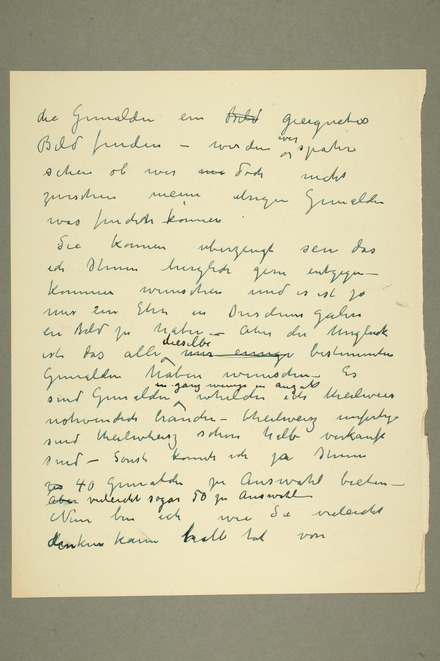 die Gemalden ein Bild geeignetes
Bild finden – werden wir spater
sehen ob wir doch nicht
zwischen meine ubrigen Gemalden
was finden können
Sie konnen uberzeugt sein das
ich Ihnen herzlich gern entgegen-
kommen wunschen und es ist ja
mir eine Ehre in Dresdens Galerie
ein Bild zu haben – Aber der Ungluck
ist das alle dieselbe bestimmten
Gemalden haben wunschen – Es
sind Gemalden in ganz wenige in anzahl welchen ich theilweis
notwendich brauche – theilweis unfertige
sind theilweis schon halb verkauft
sind – Sonst konnte ich ja Ihnen
40 Gemalden zu Auswahl bieten –
Aber vieleicht sogar 50 zu Auswahl
Nun bin ich wie Sie vieleicht
denken kann halb tot von